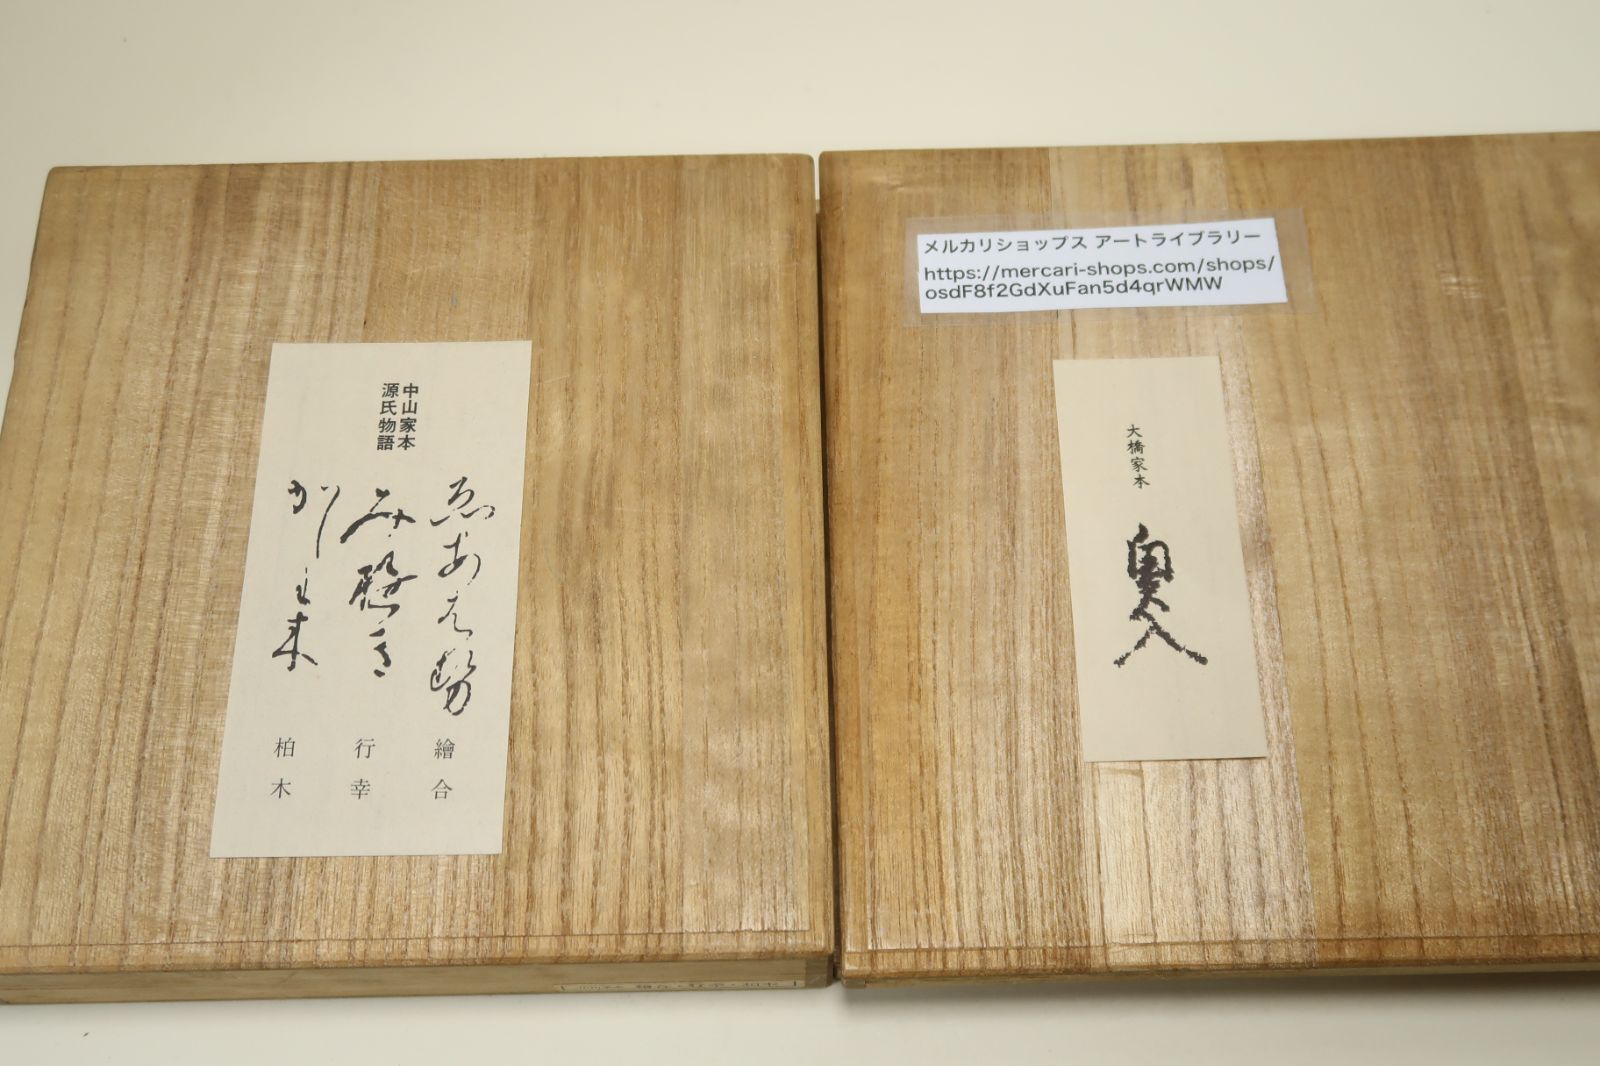 中山家本
源氏物語
ゑあはせ
み遊き
かし
繪合
行幸
柏木
メルカリショップス アートライブラリー
https://mercari-shops.com/shops/
osdF8f2GdXuFan5d4qrWMW
大橋家本
奥入